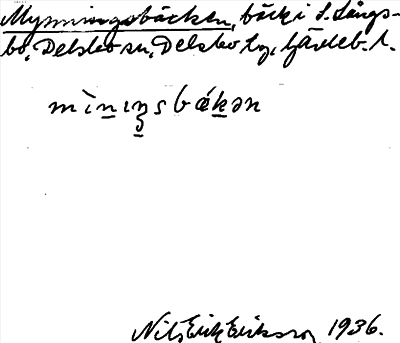 Mynningsbäcken, bäck i S. Långs-
bo, Delsbo sn, Delsbo tg, Gävleb. l.
mìnıŋsbäkən
Nils Erik Eriksson 1936.